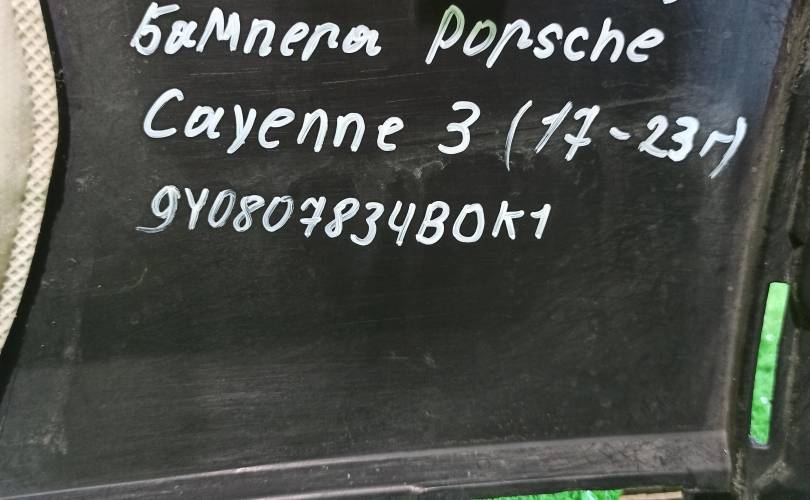 бампера Porsche
Cayenne 3 (17-23г)
9Y0807834BOK1